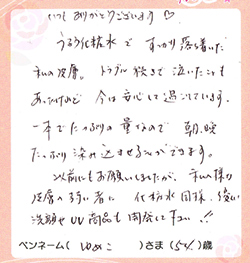 いつも ありがとうございます♡
うるう化粧水で すっかり落ち着いた
私の皮膚。トラブル続きで泣いたことも
あったけど 今は安心して過ごしています。
一本でたっぷりの量なので 朝、晩
たっぷり染み込ませることができます。
以前にもお願いしましたが、私の様な
皮膚の弱い者に 化粧水同様、優しい
洗顔やUV商品も開発して下さい!!
ペンネーム( ゆめこ )さま(54)歳